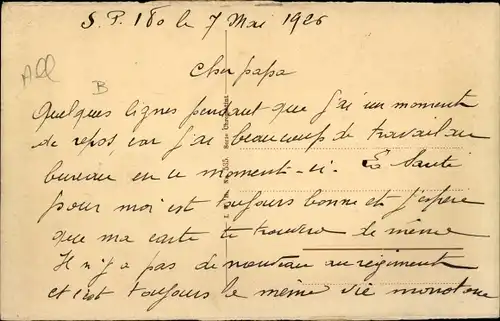 S. P. 180 le 7 Mai 1926
All
B
Cher papa
Quelques lignes pendant que j'ai un moment
de repos car j'ai beaucoup de travail au
bureau en ce moment-ci. La Santé
pour moi est toujours bonne et j'espère
que ma carte te trouvera de même
Il n'y a pas de nouveau au régiment
et c'est toujours la même vie monotone